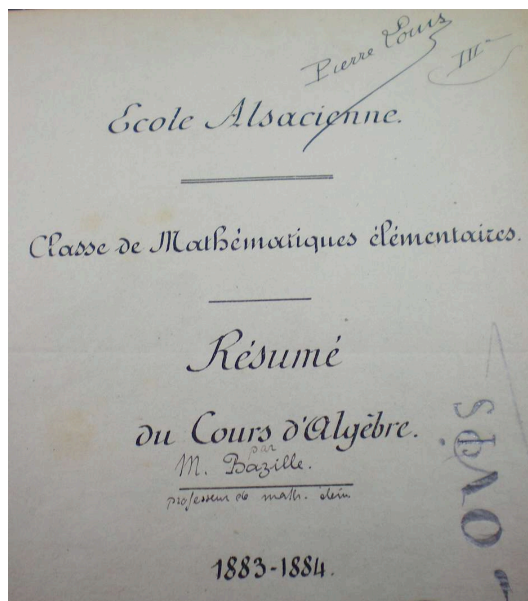 Pierre Louis
III
Ecole Alsacienne.
Classe de Mathématiques élémentaires.
Résumé
du Cours d'Algèbre.
par
M. Bazille.
professeur de math. élém.
1883-1884.